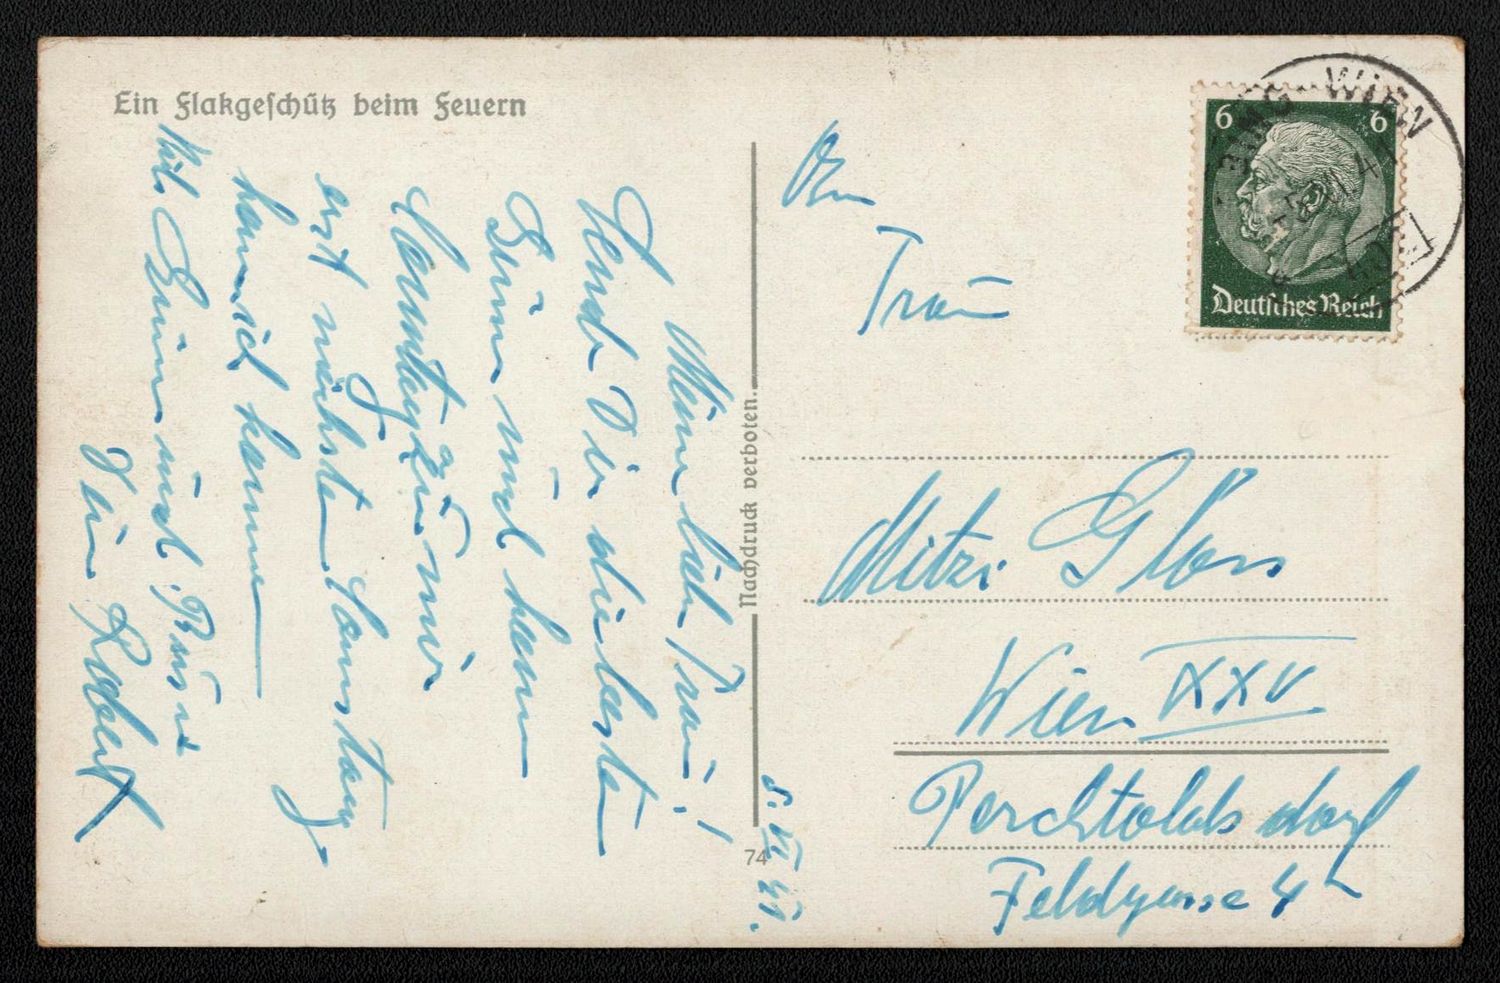 Ein Flakgeschütz beim Feuern
Meine liebe Frau!
Sende Dir die besten
Grüsse und kann
Sonntag zu mir
erst nächsten Samstag,
kommen
Viele Grüsse und Bussi
Dein Robert
8. VI 41.
Nachdruck verboten.
74
An
Frau
Mitzi Glas
Wien XXV
Perchtoldsdorf
Feldgasse 4
6 6
Deutsches Reich
WIEN